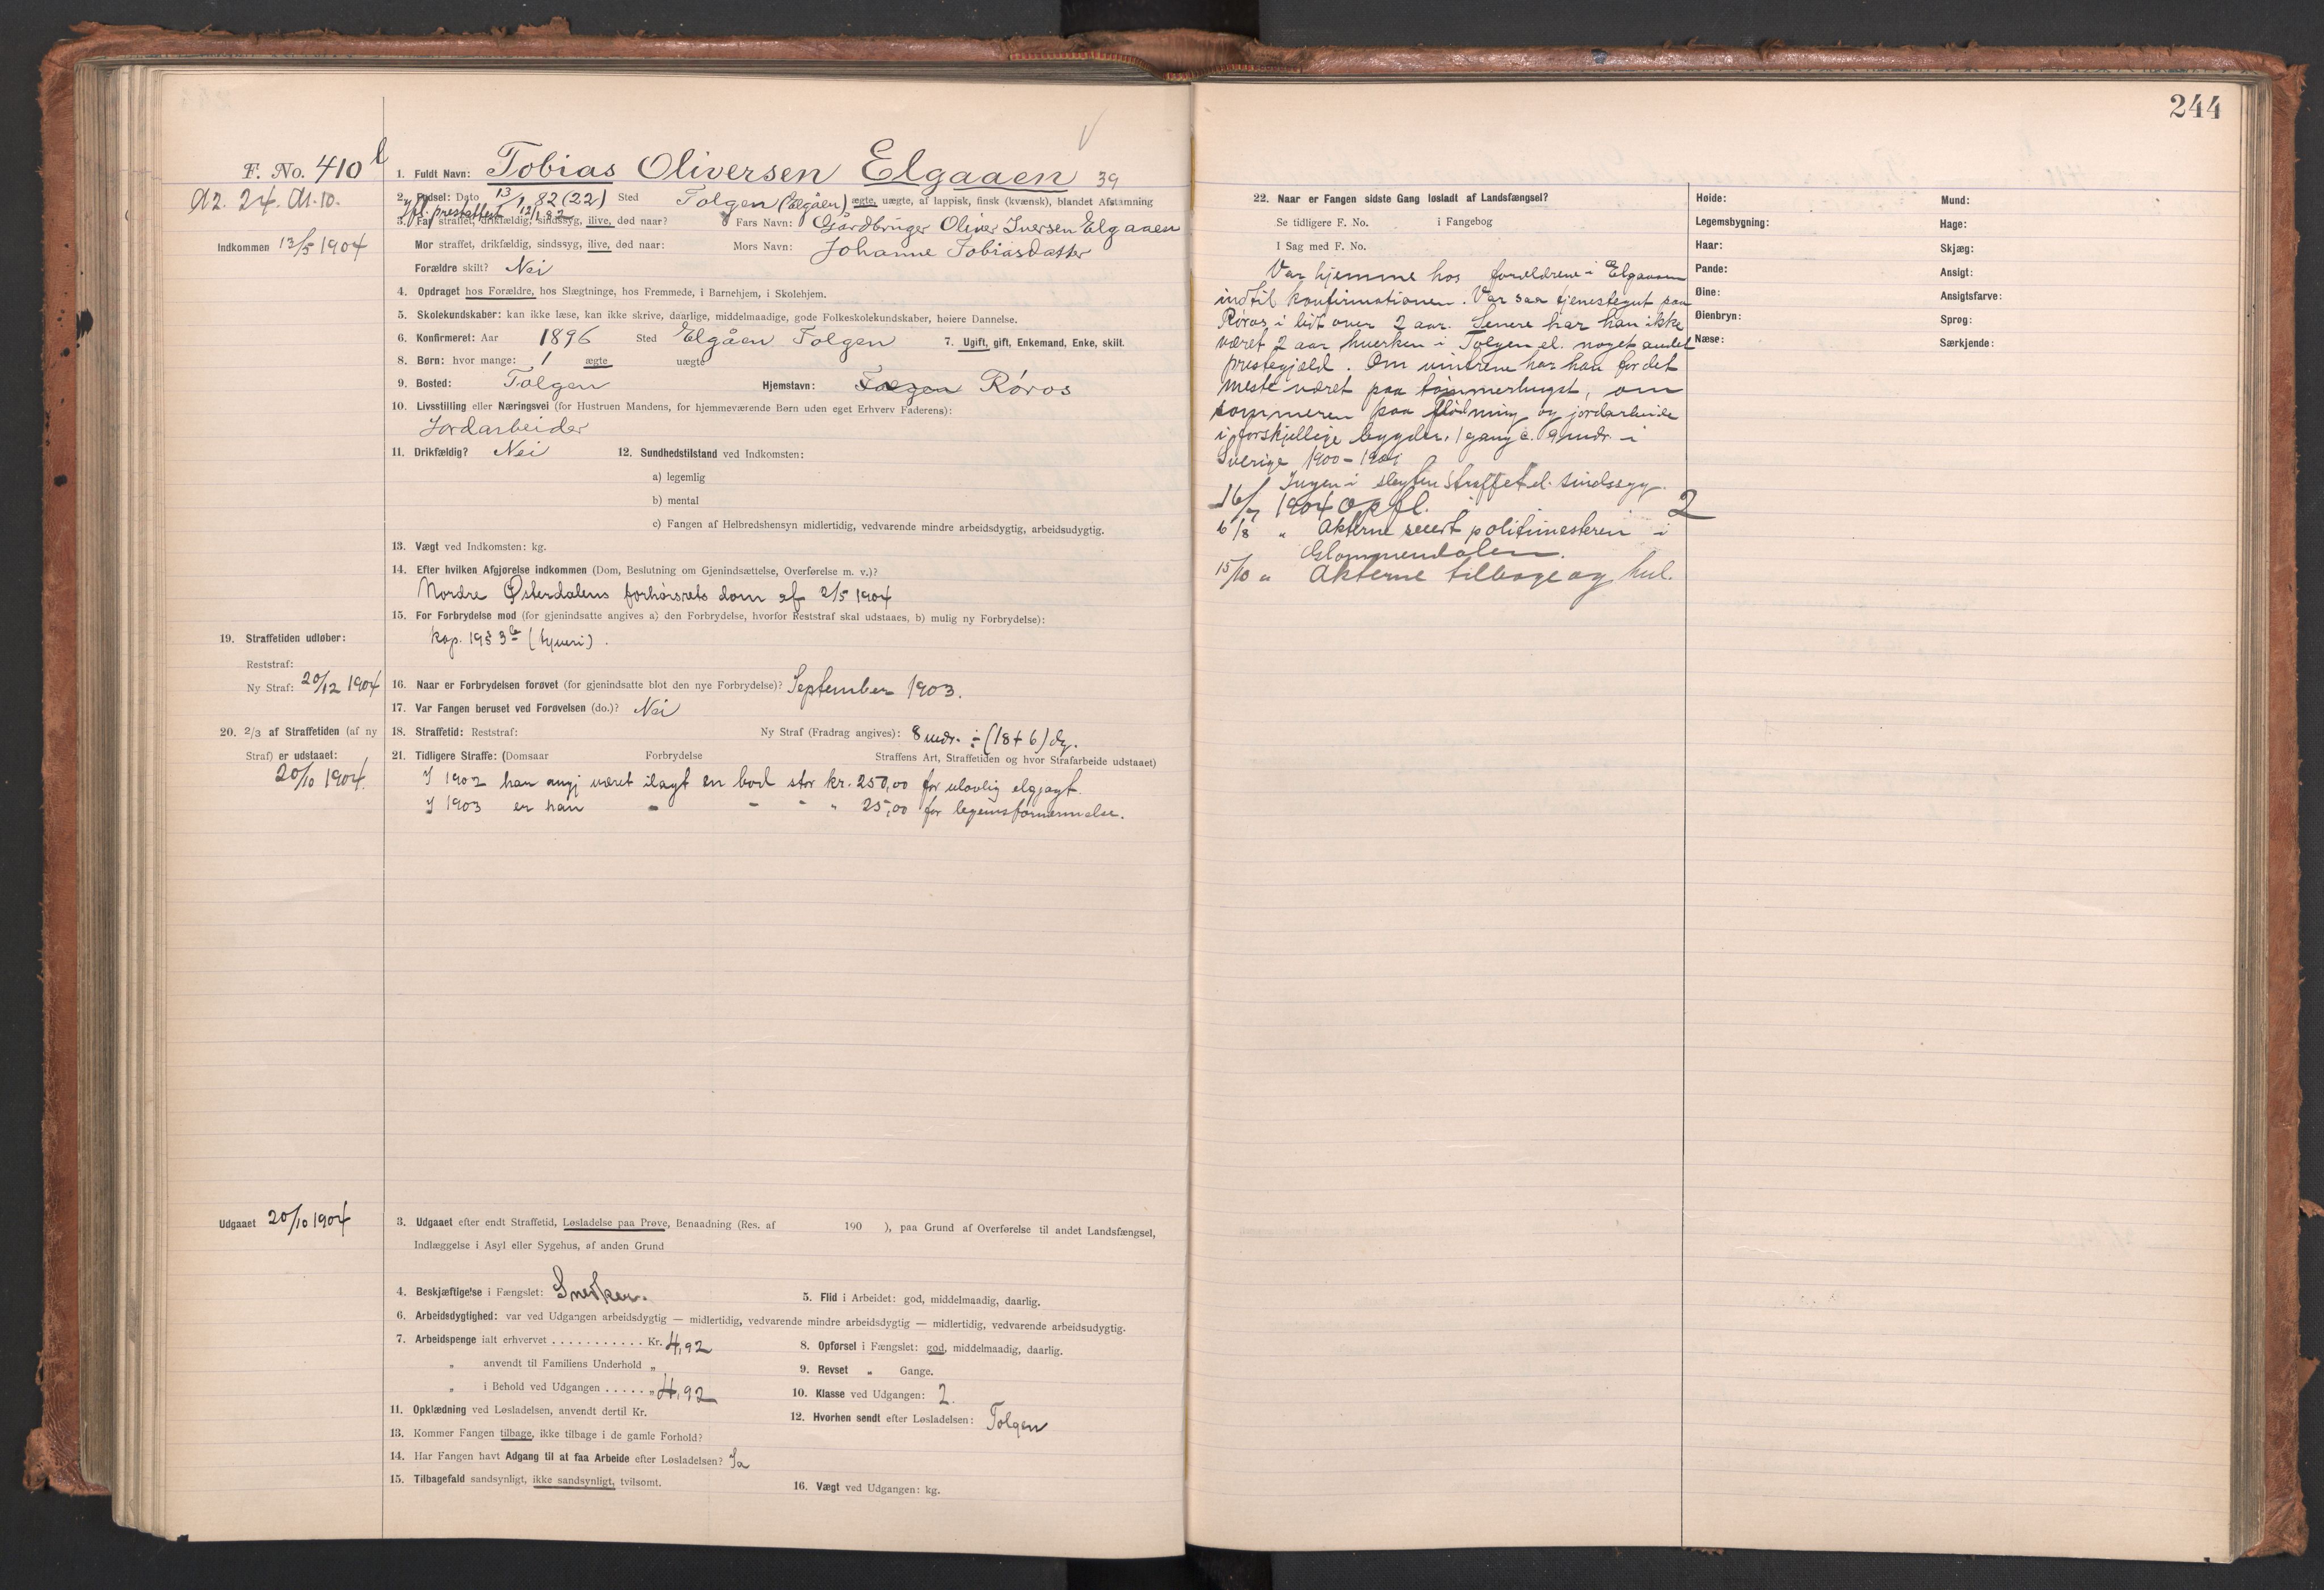 244
F. No. 410 b
A2. 24. A1. 10.
Indkommen 13/5 1904
1. Fuldt Navn: Tobias Oliversen Elgaaen 39
2. Fødsel: Dato 13/1 82 (22) Sted Tolgen (Elgåen) ægte, uægte, af lappisk, finsk (kvænsk), blandet Afstamning
ifl. prestattest 12/1 82
3. Far straffet, drikfældig, sindssyg, ilive, død naar? Fars Navn: Gårdbruger Oliver Iversen Elgaaen
Mor straffet, drikfældig, sindssyg, ilive, død naar: Mors Navn: Johanne Tobiasdatter
Forældre skilt? Nei
4. Opdraget hos Forældre, hos Slægtninge, hos Fremmede, i Barnehjem, i Skolehjem.
5. Skolekundskaber: kan ikke læse, kan ikke skrive, daarlige, middelmaadige, gode Folkeskolekundskaber, høiere Dannelse.
6. Konfirmeret: Aar 1896 Sted Elgåen Tolgen 7. Ugift, gift, Enkemand, Enke, skilt.
8. Børn: hvor mange: 1 ægte uægte
9. Bosted: Tolgen Hjemstavn: Tolgen Røros
10. Livsstilling eller Næringsvei (for Hustruen Mandens, for hjemmeværende Børn uden eget Erhverv Faderens):
Jordarbeider
11. Drikfældig? Nei 12. Sundhedstilstand ved Indkomsten:
a) legemlig
b) mental
c) Fangen af Helbredshensyn midlertidig, vedvarende mindre arbeidsdygtig, arbeidsudygtig.
13. Vægt ved Indkomsten: kg.
14. Efter hvilken Afgjørelse indkommen (Dom, Beslutning om Gjenindsættelse, Overførelse m. v.)?
Nordre Østerdalens forhørsrets dom af 2/5 1904
15. For Forbrydelse mod (for gjenindsatte angives a) den Forbrydelse, hvorfor Reststraf skal udstaaes, b) mulig ny Forbrydelse):
kap. 19 § 3 (tyveri).
19. Straffetiden udløber:
Reststraf:
Ny Straf: 20/12 1904
16. Naar er Forbrydelsen forøvet (for gjenindsatte blot den nye Forbrydelse)? September 1903.
17. Var Fangen beruset ved Forøvelsen (do.)? Nei
20. 2/3 af Straffetiden (af ny
Straf) er udstaaet:
20/10 1904.
18. Straffetid: Reststraf: Ny Straf (Fradrag angives): 8 mdr. ÷ (18+6) dg.
21. Tidligere Straffe: (Domsaar Forbrydelse Straffens Art, Straffetiden og hvor Strafarbeide udstaaet)
I 1902 han angj været ilagt en bod stor kr. 250,00 for ulovlig elgjagt.
I 1903 er han " " " " 25,00 for legemsfornærmelse.
Udgaaet 20/10 1904
3. Udgaaet efter endt Straffetid, Løsladelse paa Prøve, Benaadning (Res. af 190 ), paa Grund af Overførelse til andet Landsfængsel,
Indlæggelse i Asyl eller Sygehus, af anden Grund
4. Beskjæftigelse i Fængslet: Snedker. 5. Flid i Arbeidet: god, middelmaadig, daarlig.
6. Arbeidsdygtighed: var ved Udgangen arbeidsdygtig — midlertidig, vedvarende mindre arbeidsdygtig — midlertidig, vedvarende arbeidsudygtig.
7. Arbeidspenge ialt erhvervet . . . . . . . . . . . Kr. 4,92 8. Opførsel i Fængslet: god, middelmaadig, daarlig.
" anvendt til Familiens Underhold " 9. Revset " Gange.
" i Behold ved Udgangen . . . . . " 4,92 10. Klasse ved Udgangen: 2.
11. Opklædning ved Løsladelsen, anvendt dertil Kr. 12. Hvorhen sendt efter Løsladelsen: Tolgen
13. Kommer Fangen tilbage, ikke tilbage i de gamle Forhold?
14. Har Fangen havt Adgang til at faa Arbeide efter Løsladelsen? Ja
15. Tilbagefald sandsynligt, ikke sandsynligt, tvilsomt. 16. Vægt ved Udgangen: kg.
22. Naar er Fangen sidste Gang løsladt af Landsfængsel?
Se tidligere F. No. i Fangebog
I Sag med F. No.
Var hjemme hos forældrene i Elgaaen
indtil konfirmationen. Var saa tjenestegut paa
Røros i lidt over 2 aar. Senere har han ikke
været 2 aar hverken i Tolgen el. noget andet
prestegjæld. Om vintrene har han for det
meste været paa tømmerhugst, om
sommeren paa flødning og jordarbeide
i forskjellige bygder, 1 gang c. 9 mdr. i
Sverige 1900-1901
Ingen i slegten straffet el. sindssyg.
16/7 1904 opfl. 2
6/8 " Akterne sendt politimesteren i
Glommendalen.
15/10 " Akterne tilbage og hul.
Høide:
Legemsbygning:
Haar:
Pande:
Øine:
Øienbryn:
Næse:
Mund:
Hage:
Skjæg:
Ansigt:
Ansigtsfarve:
Sprog:
Særkjende: